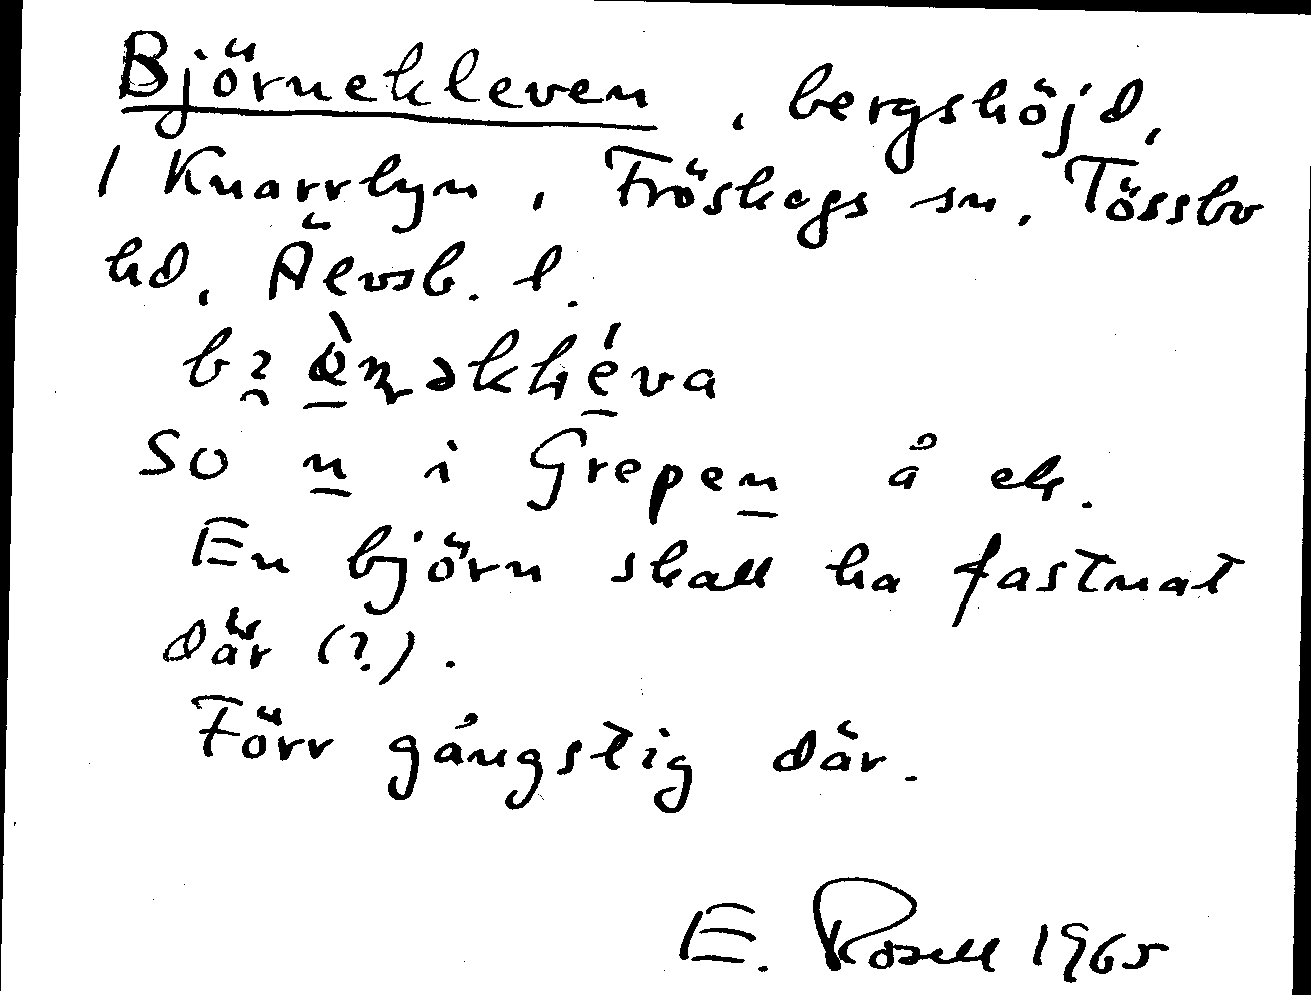 Björnekleven, bergshöjd,
1 Knarrbyn, Fröskogs sn, Tössbo
hd, Älvsb. l.
SO n i Grepen å ek.
En björn skall ha fastnat
där (?).
Förr gångstig där.
E. Rosell 1965